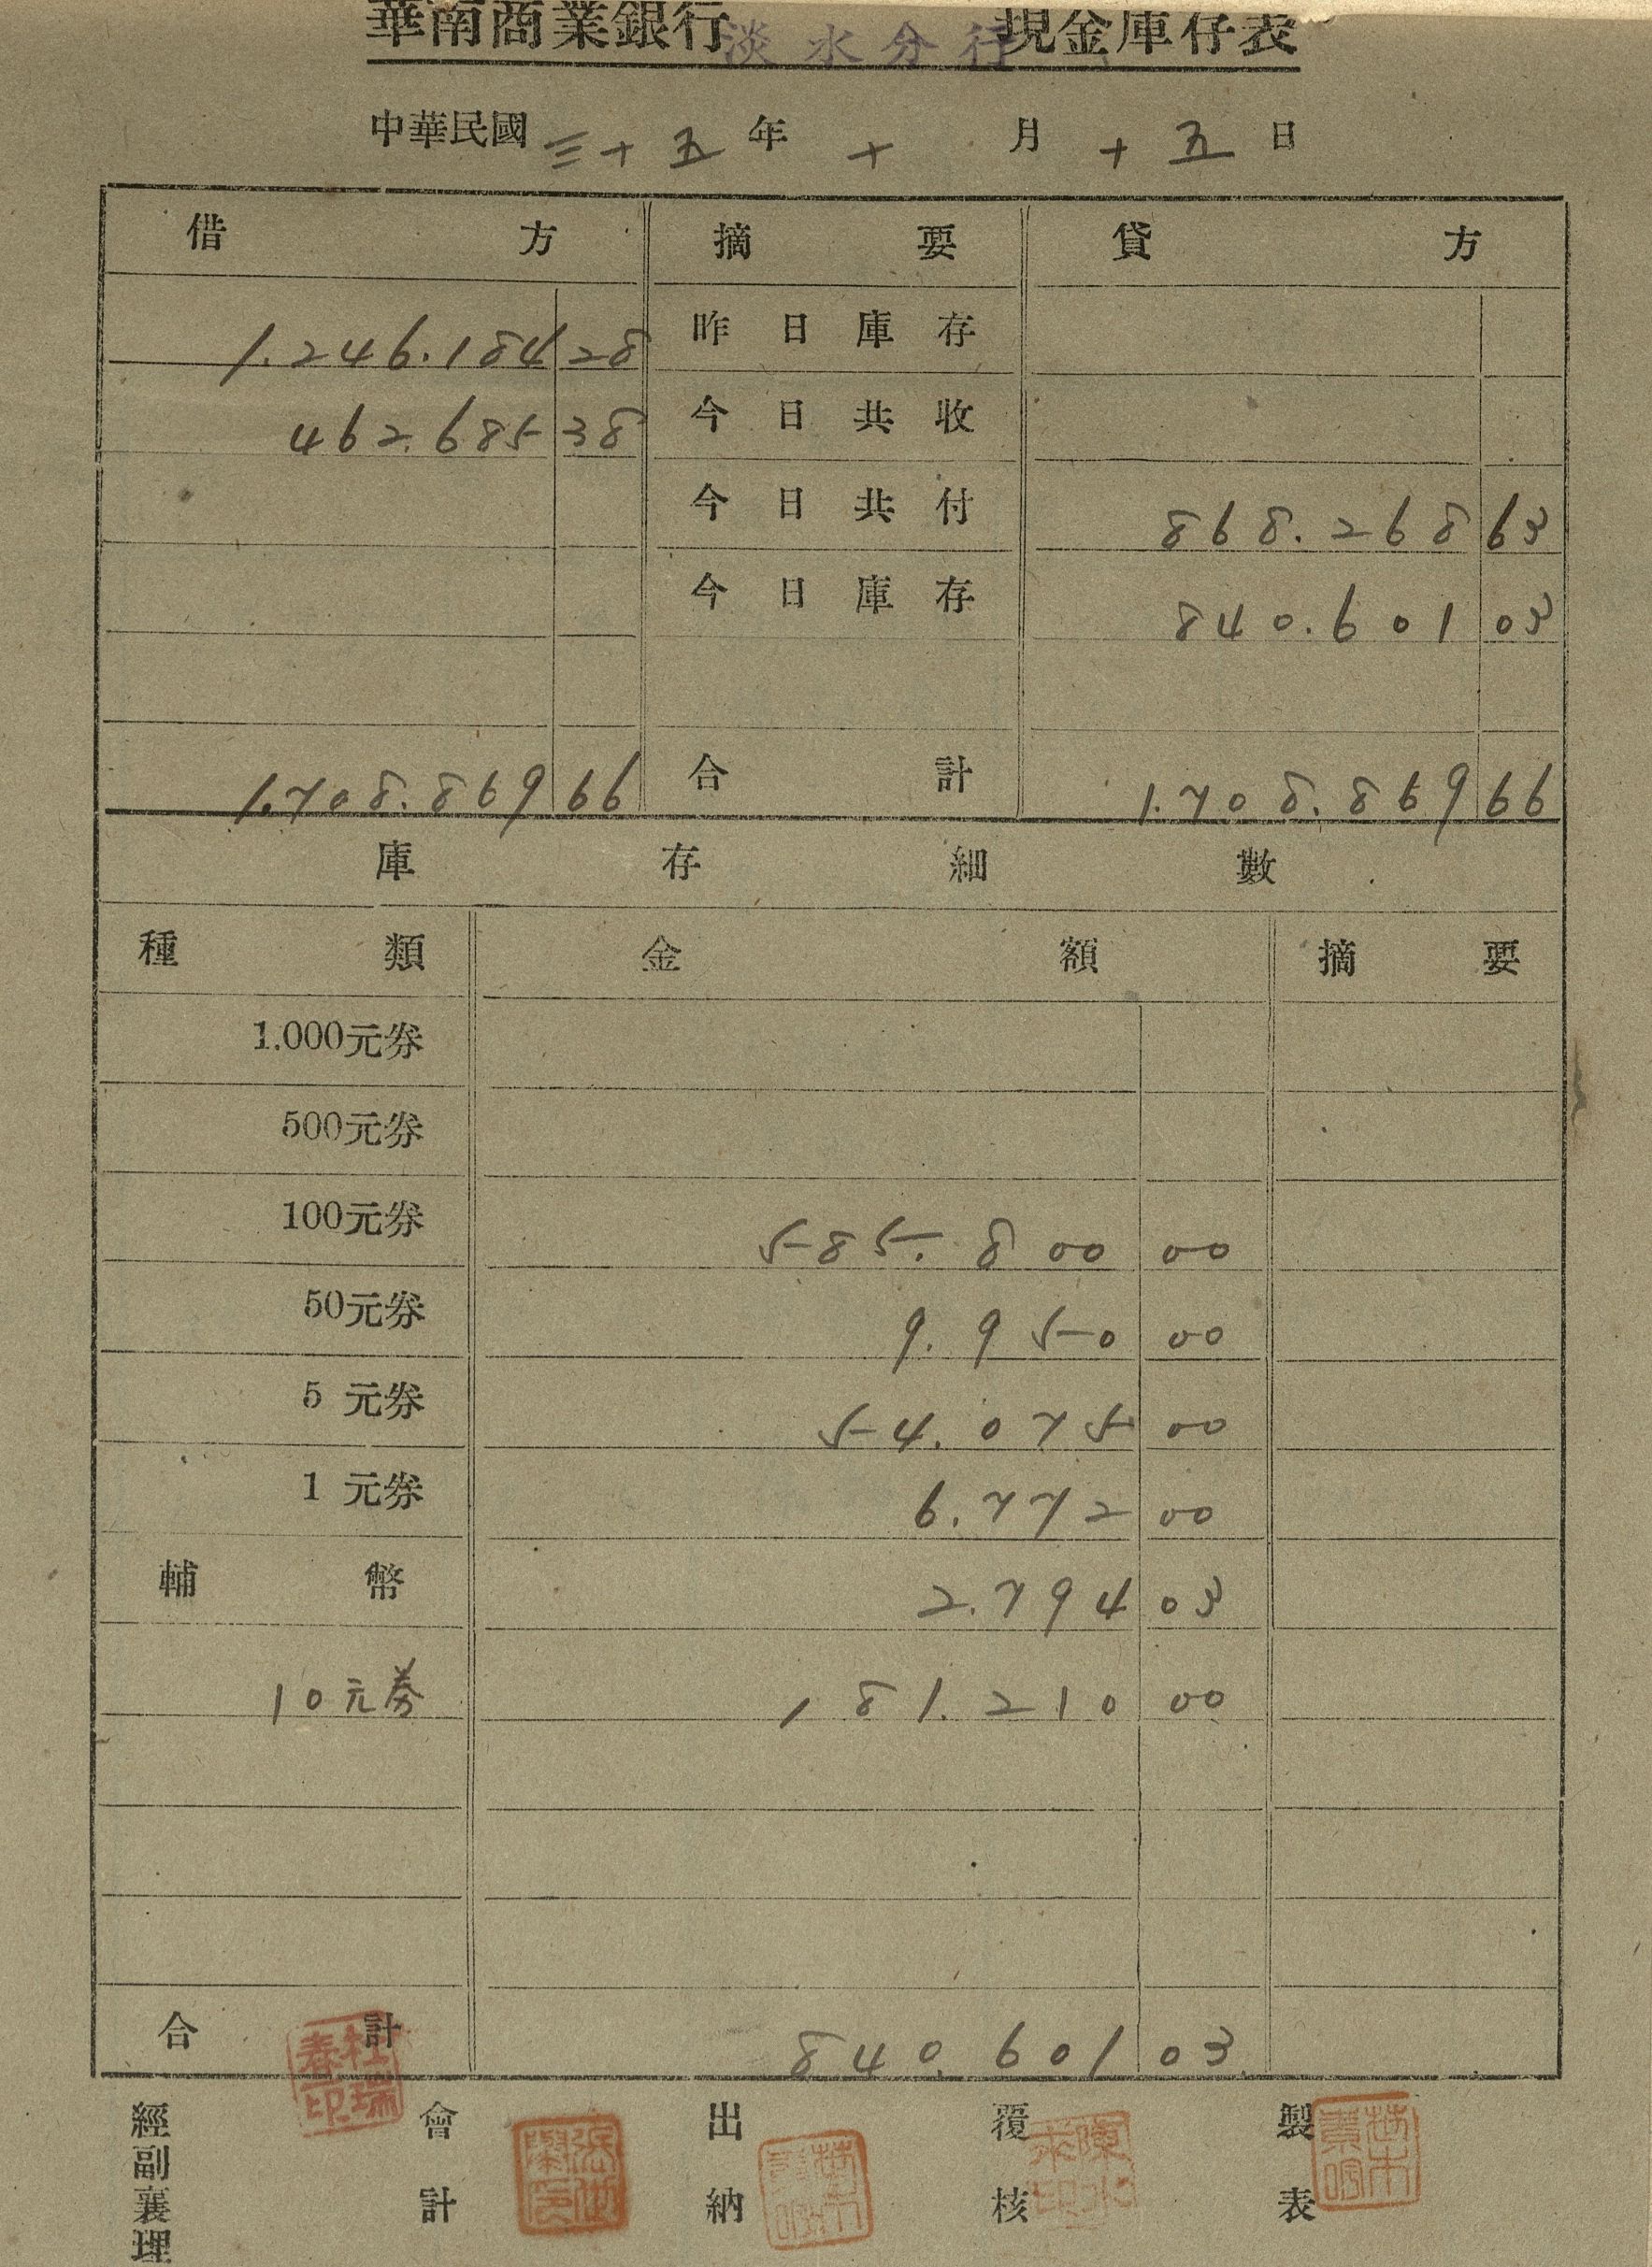 華南商業銀行淡水分行現金庫存表
中華民國三十五年十月十五日
借方 摘要 貸方
1.246.184 28 昨日庫存
462.685 38 今日共收
今日共付 868.268 63
今日庫存 840.601 03
1.708.869 66 合計 1.708.869 66
庫存細數
種類 金額 摘要
1.000元券
500元券
100元券 585.800 00
50元券 9.950 00
5元券 54.075 00
1元券 6.772 00
輔幣 2.794 03
10元券 181.210 00
合計 840.601 03
杜瑞春印
經副襄理 會計 出納 覆核 製表